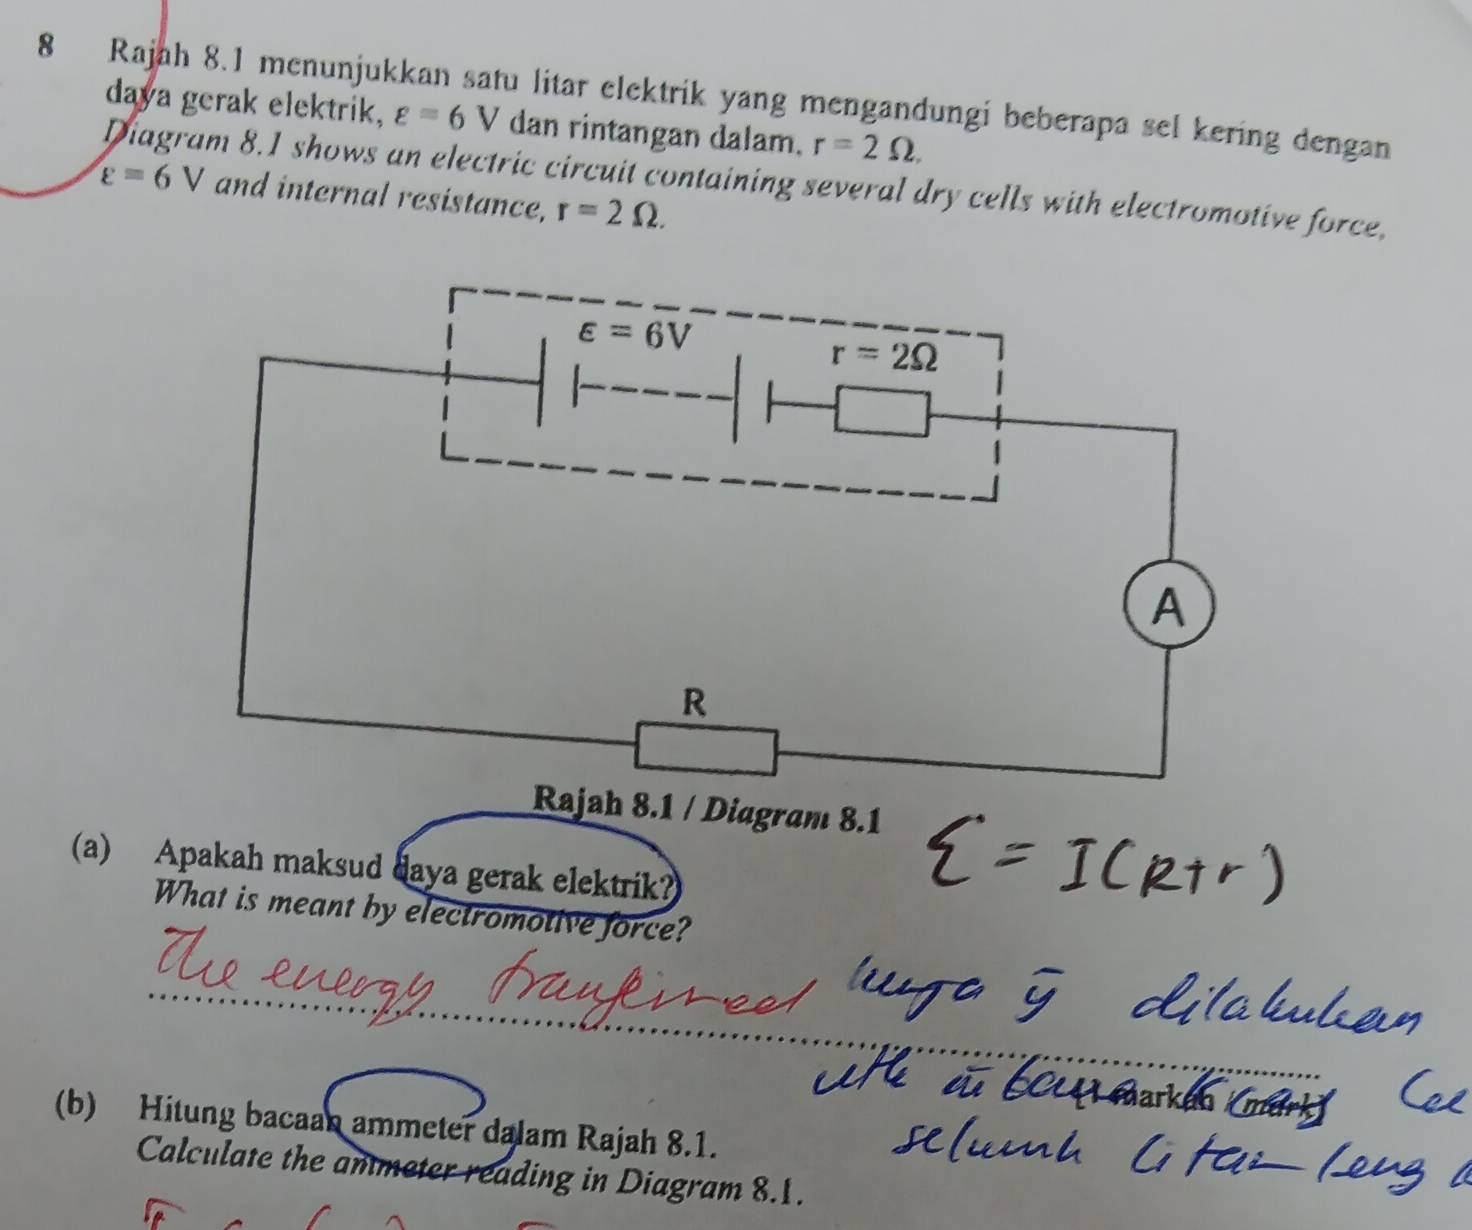 8 Rajah 8.1 menunjukkan satu litar elektrik yang mengandungi beberapa sel kering dengan
daya gerak elektrik, ε = 6 V dan rintangan dalam, r = 2 Ω.
Diagram 8.1 shows an electric circuit containing several dry cells with electromotive force,
ε = 6 V and internal resistance, r = 2 Ω.
ε = 6V
r = 2Ω
A
R
Rajah 8.1 / Diagram 8.1
Ɛ = I(R+r)
(a) Apakah maksud daya gerak elektrik?
What is meant by electromotive force?
The energy dilakukan
markah
selumh litar
(b) Hitung bacaan ammeter dalam Rajah 8.1.
Calculate the ammeter reading in Diagram 8.1.